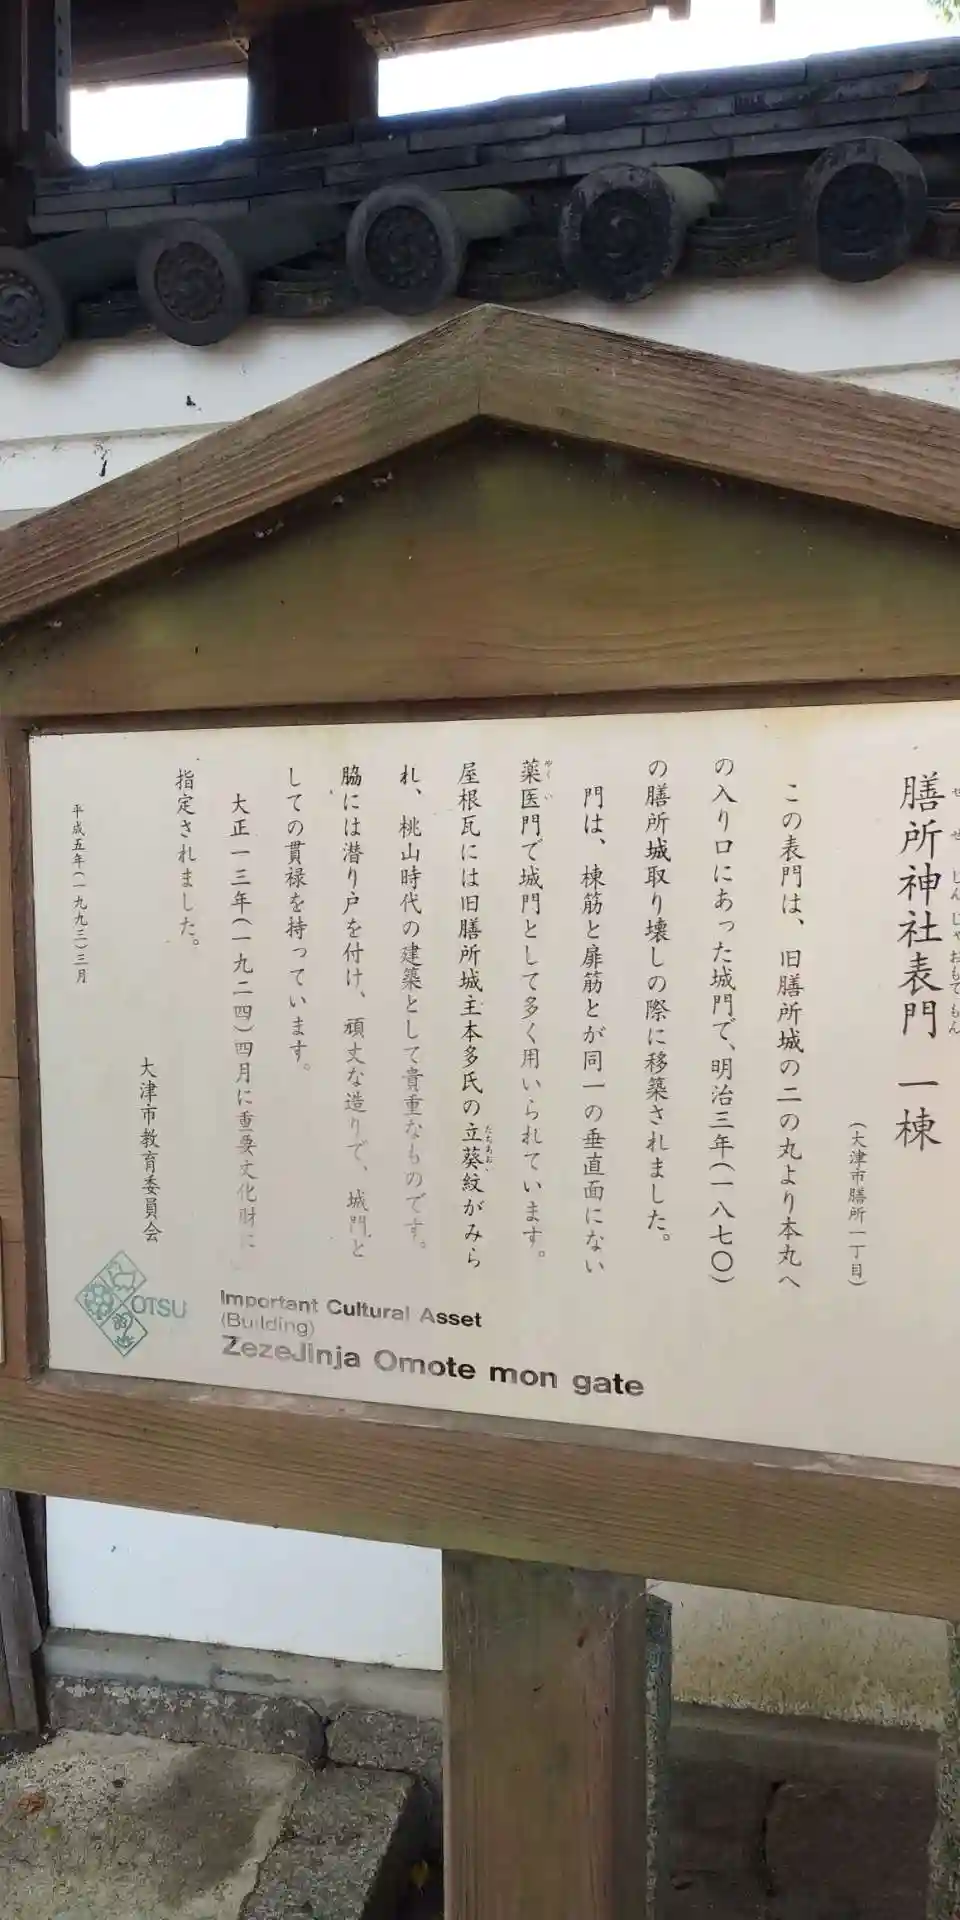 膳所神社表門 一棟
ぜぜじんじゃおもてもん
（大津市膳所一丁目）
この表門は、旧膳所城の二の丸より本丸へ
の入り口にあった城門で、明治三年（一八七〇）
の膳所城取り壊しの際に移築されました。
門は、棟筋と扉筋とが同一の垂直面にない
薬医門で城門として多く用いられています。
やくい
屋根瓦には旧膳所城主本多氏の立葵紋がみら
たちあおい
れ、桃山時代の建築として貴重なものです。
脇には潜り戸を付け、頑丈な造りで、城門と
しての貫禄を持っています。
大正一三年（一九二四）四月に重要文化財に
指定されました。
大津市教育委員会
平成五年（一九九三）三月
OTSU
Important Cultural Asset
(Building)
ZezeJinja Omote mon gate